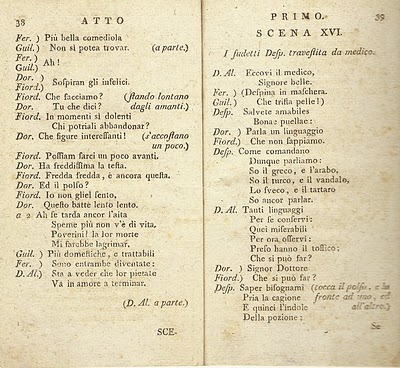 38 ATTO
Fer. ) Più bella comediola
Guil. ) Non si potea trovar. (a parte.)
Fer. )
Guil. ) Ah!
Dor. )
Fiord. ) Sospiran gli infelici.
Fiord. Che facciamo? (stando lontano
Dor. Tu che dici? dagli amanti.)
Fiord. In momenti sì dolenti
Chi potriali abbandonar?
Dor. Che figure interessanti! (s'accostano
un poco.)
Fiord. Possiam farci un poco avanti.
Dor. Ha freddissima la testa.
Fiord. Fredda fredda, è ancora questa.
Dor. Ed il polso?
Fiord. Io non gliel sento,
Dor. Questo batte lento lento.
a 2 Ah se tarda ancor l'aita
Speme più non v'è di vita.
Poverini! la lor morte
Mi farebbe lagrimar.
Guil. ) Più domestiche, e trattabili
Fer. ) Sono entrambe diventate:
D. Al.) Sta a veder che lor pietate
Và in amore a terminar.
(D. Al. a parte.)
SCE-
PRIMO. 39
SCENA XVI.
I sudetti Desp. travestita da medico.
D. Al. Eccovi il medico,
Signore belle.
Fer. ) (Despina in maschera.
Guil. ) Che trista pelle!)
Desp. Salvete amabiles
Bonæ puellæ:
Dor. ) Parla un linguaggio
Fiord.) Che non sappiamo.
Desp. Come comandano
Dunque parliamo:
So il greco, e l'arabo,
So il turco, e il vandalo,
Lo svevo, e il tartaro
So ancor parlar.
D. Al. Tanti linguaggi
Per se conservi:
Quei miserabili
Per ora osservi:
Preso hanno il tossico;
Che si può far?
Dor. ) Signor Dottore
Fiord.) Che si può far?
Desp. Saper bisognami (tocca il polso, e la
Pria la cagione fronte ad uno, ed
E quinci l'indole all'altro.)
Della pozione;
Se